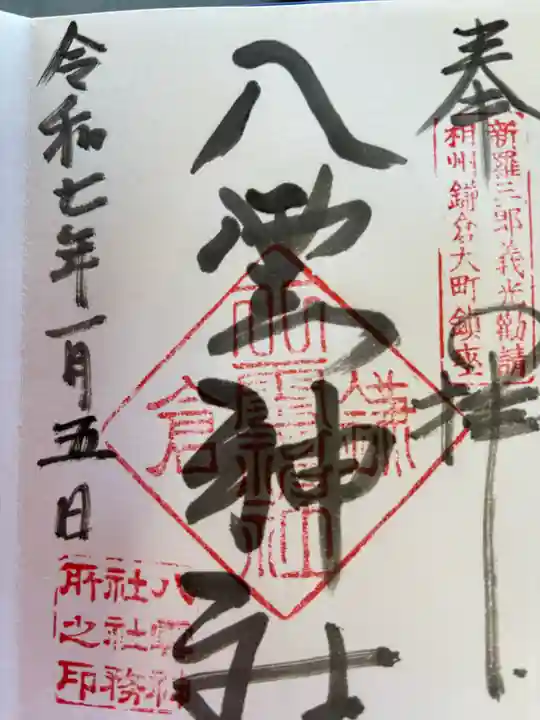 奉拝
新羅三郎義光勧請
相州鎌倉大町鎮座
八雲神社
鎌倉
八雲神社
八雲神
社社務
所之印
令和七年一月五日